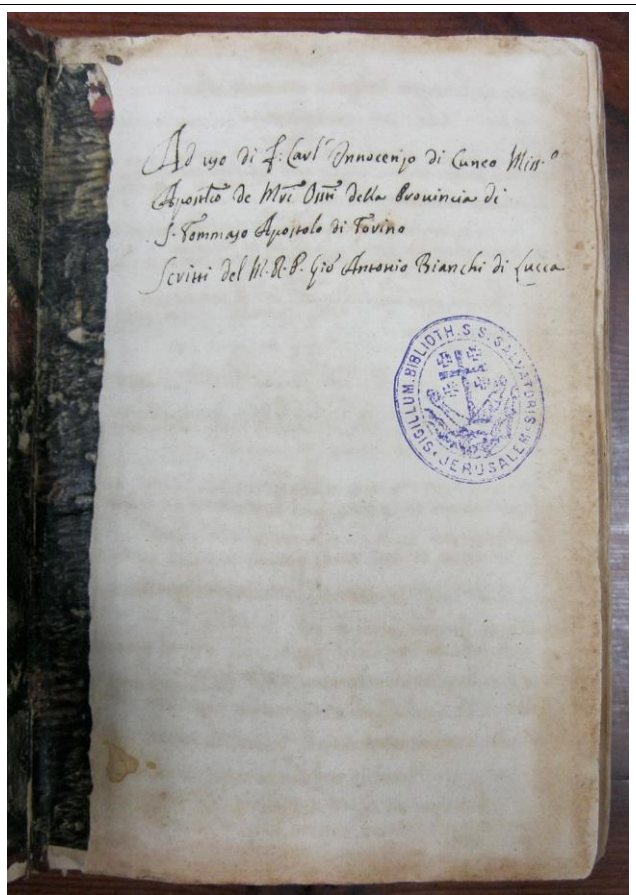 Ad uso di f. Carl' Innocenzo di Cuneo Miss.º
Apostco de Mri Ossti della Provincia di
S. Tommaso Apostolo di Torino
Scritti del M. R. P. Gio Antonio Bianchi di Lucca
SIGILLUM. BIBLIOTH. S S. SALVATORIS
JERUSALEM